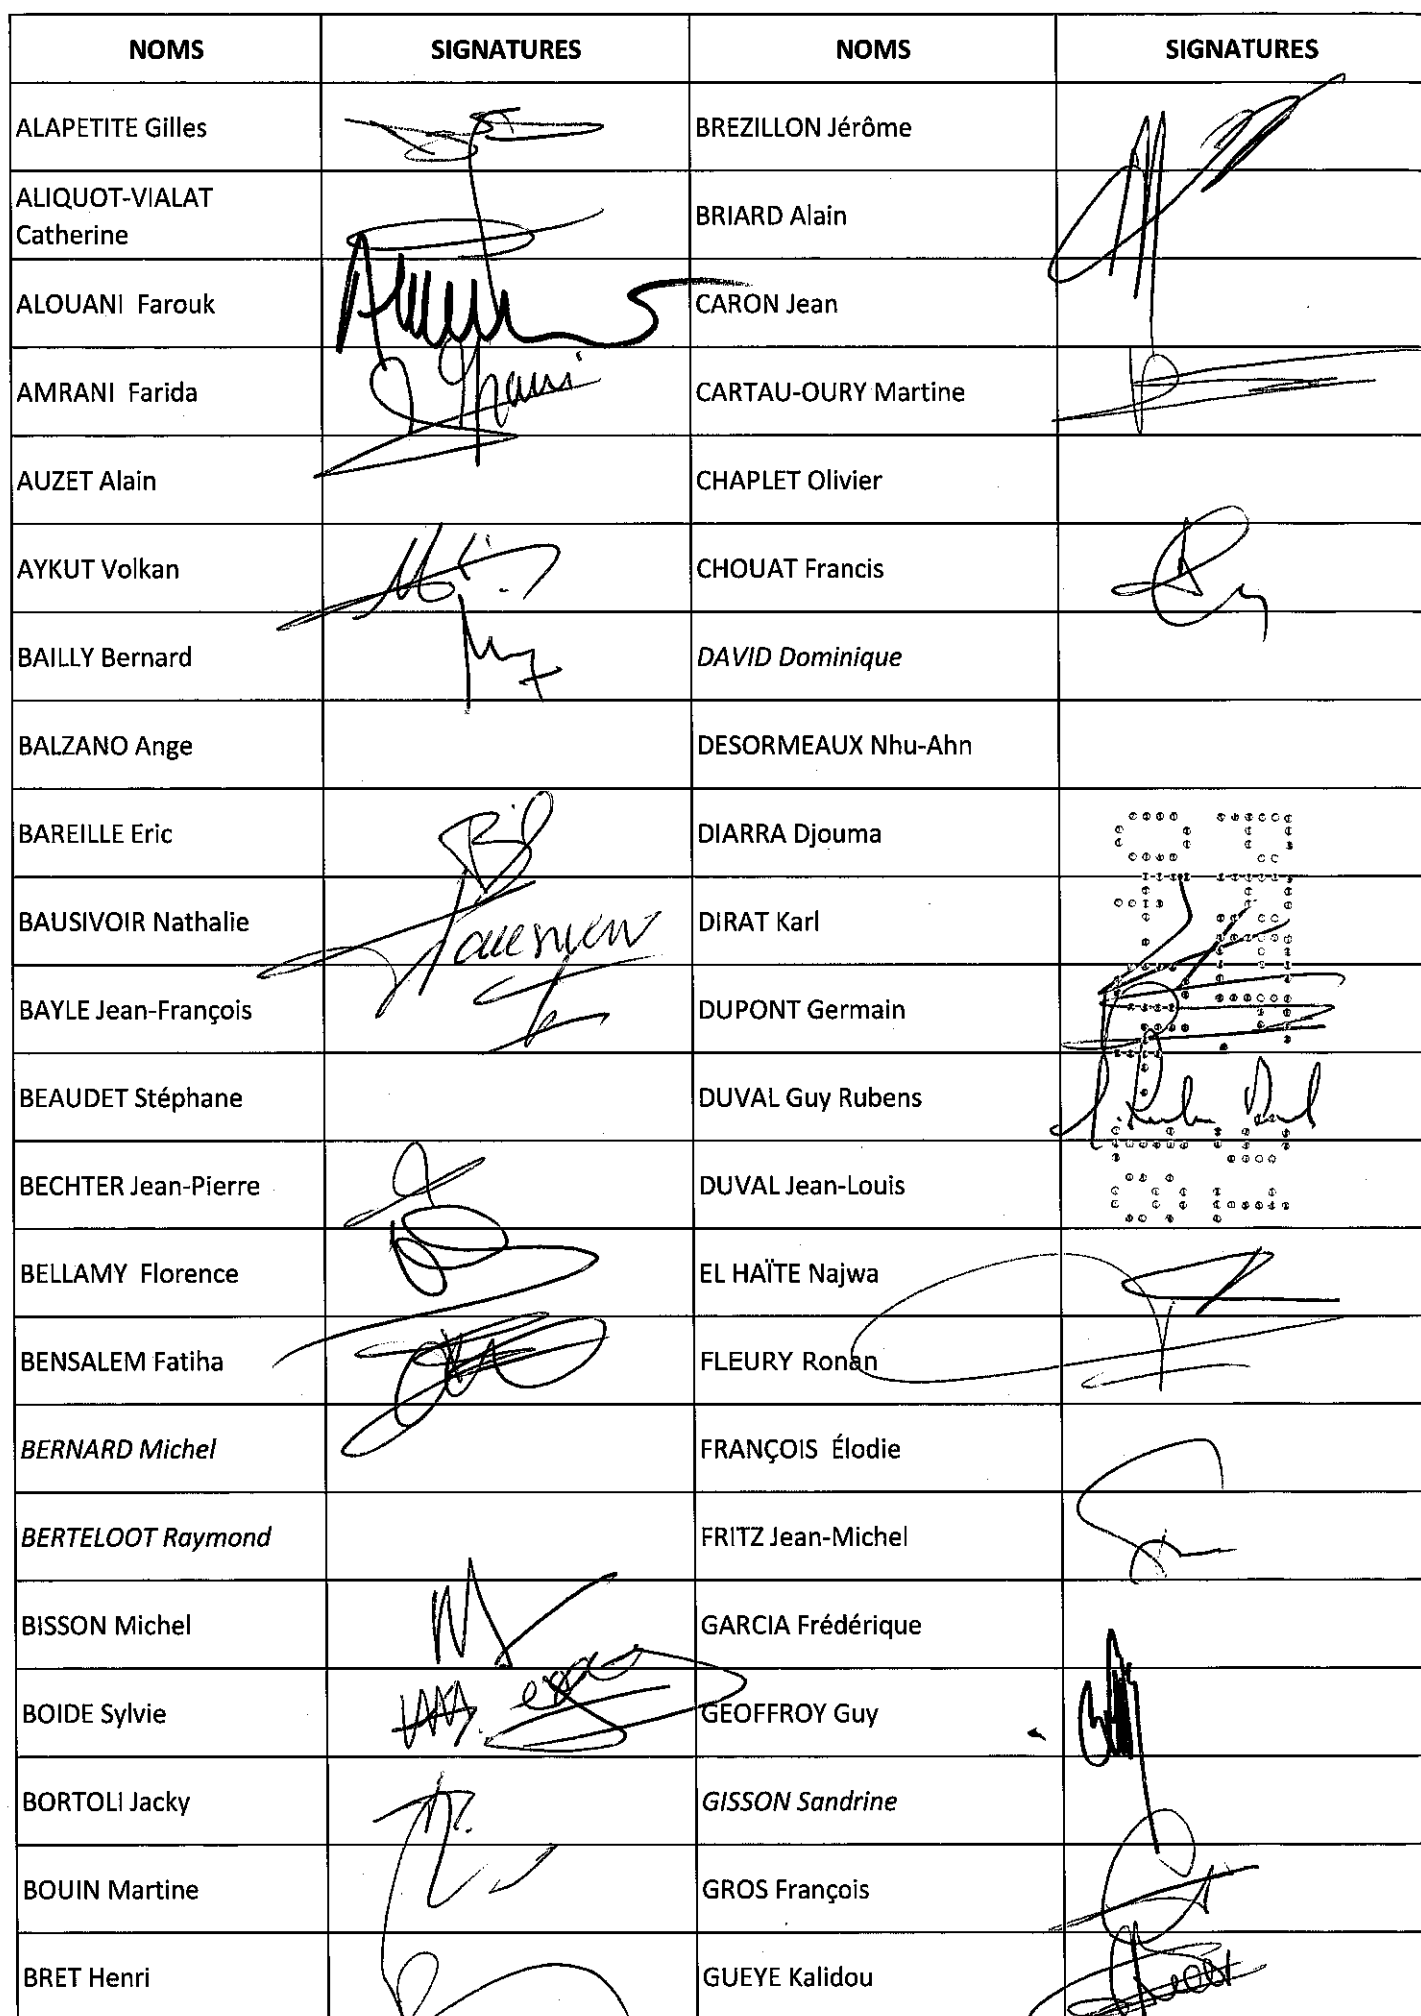 NOMS SIGNATURES NOMS SIGNATURES
ALAPETITE Gilles BREZILLON Jérôme
ALIQUOT-VIALAT
Catherine BRIARD Alain
ALOUANI Farouk CARON Jean
AMRANI Farida CARTAU-OURY Martine
AUZET Alain CHAPLET Olivier
AYKUT Volkan CHOUAT Francis
BAILLY Bernard DAVID Dominique
BALZANO Ange DESORMEAUX Nhu-Ahn
BAREILLE Eric DIARRA Djouma
BAUSIVOIR Nathalie DIRAT Karl
BAYLE Jean-François DUPONT Germain
BEAUDET Stéphane DUVAL Guy Rubens
BECHTER Jean-Pierre DUVAL Jean-Louis
BELLAMY Florence EL HAÏTE Najwa
BENSALEM Fatiha FLEURY Ronan
BERNARD Michel FRANÇOIS Élodie
BERTELOOT Raymond FRITZ Jean-Michel
BISSON Michel GARCIA Frédérique
BOIDE Sylvie GEOFFROY Guy
BORTOLI Jacky GISSON Sandrine
BOUIN Martine GROS François
BRET Henri GUEYE Kalidou